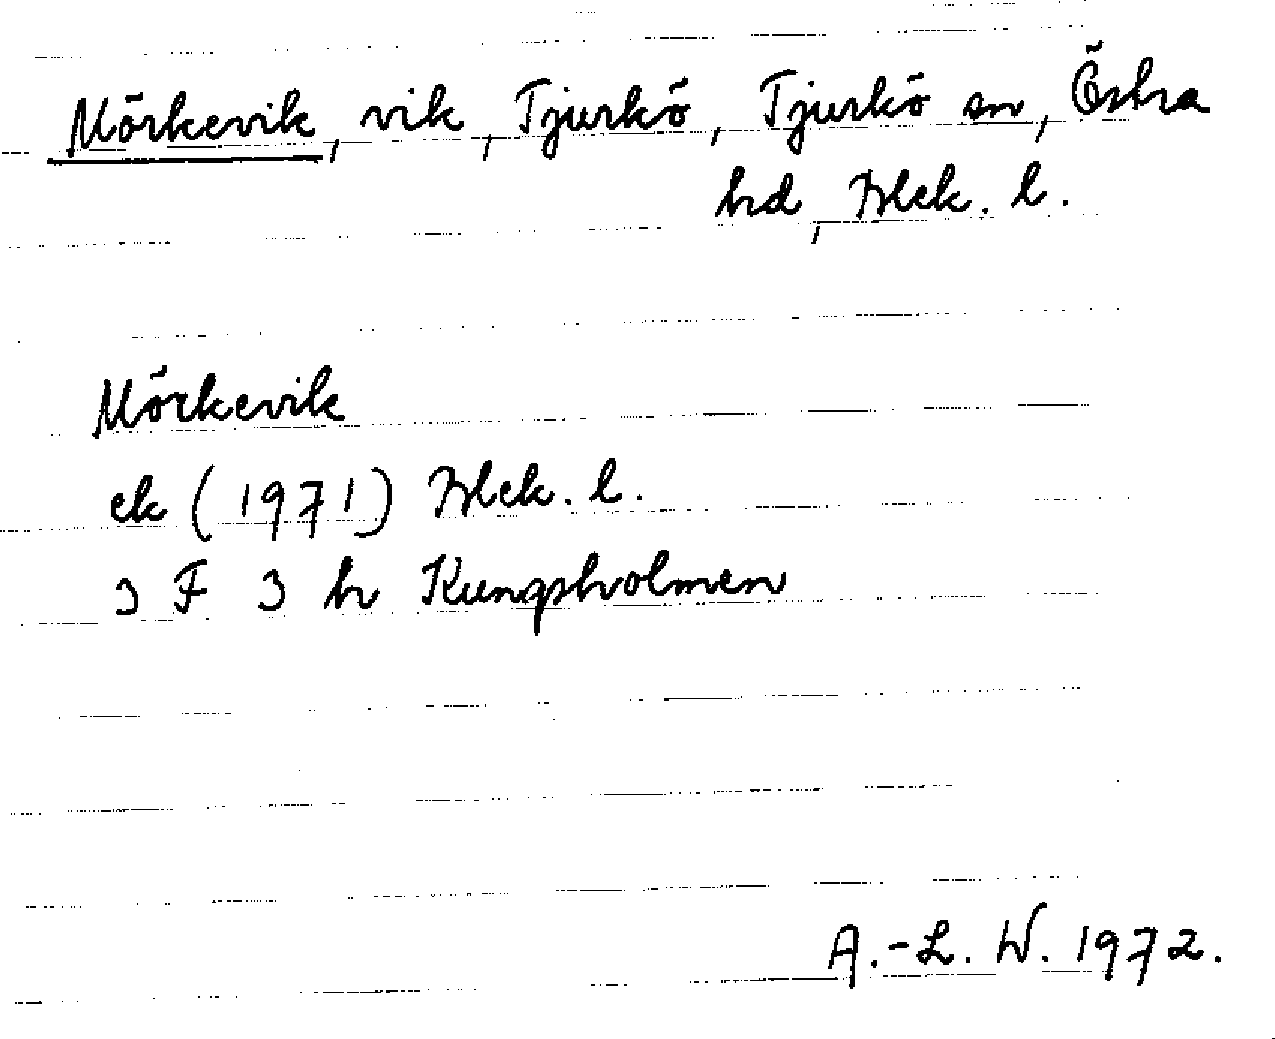 Mörkevik, vik, Tjurkö, Tjurkö sn, Östra
hd, Blek. l.
Mörkevik
ek (1971) Blek. l.
3 F 3 h Kungsholmen
A.-L. W. 1972.